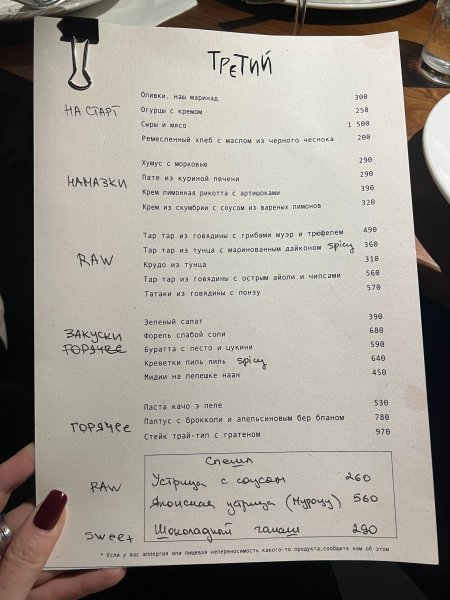 ТРЕТИЙ
НА СТАРТ
Оливки, наш маринад 300
Огурцы с кремом 250
Сыры и мясо 1 500
Ремесленный хлеб с маслом из черного чеснока 200
НАМАЗКИ
Хумус с морковью 290
Пате из куриной печени 290
Крем лимонная рикотта с артишоками 390
Крем из скумбрии с соусом из вареных лимонов 320
RAW
Тар тар из говядины с грибами муэр и трюфелем 490
Тар тар из тунца с маринованным дайконом spicy 360
Крудо из тунца 310
Тар тар из говядины с острым айоли и чипсами 560
Татаки из говядины с понзу 570
ЗАКУСКИ
ГОРЯЧЕЕ
Зеленый салат 390
Форель слабой соли 680
Буратта с песто и цукини 590
Креветки пиль пиль spicy 640
Мидии на лепешке наан 450
ГОРЯЧЕЕ
Паста качо э пепе 530
Палтус с брокколи и апельсиновым бер бланом 780
Стейк трай-тип с гратеном 970
Спешл
RAW
Устрица с соусом 260
Японская устрица (Муроцу) 560
Sweet
Шоколадный ганаш 290
* Если у вас аллергия или пищевая непереносимость какого-то продукта, сообщите нам об этом